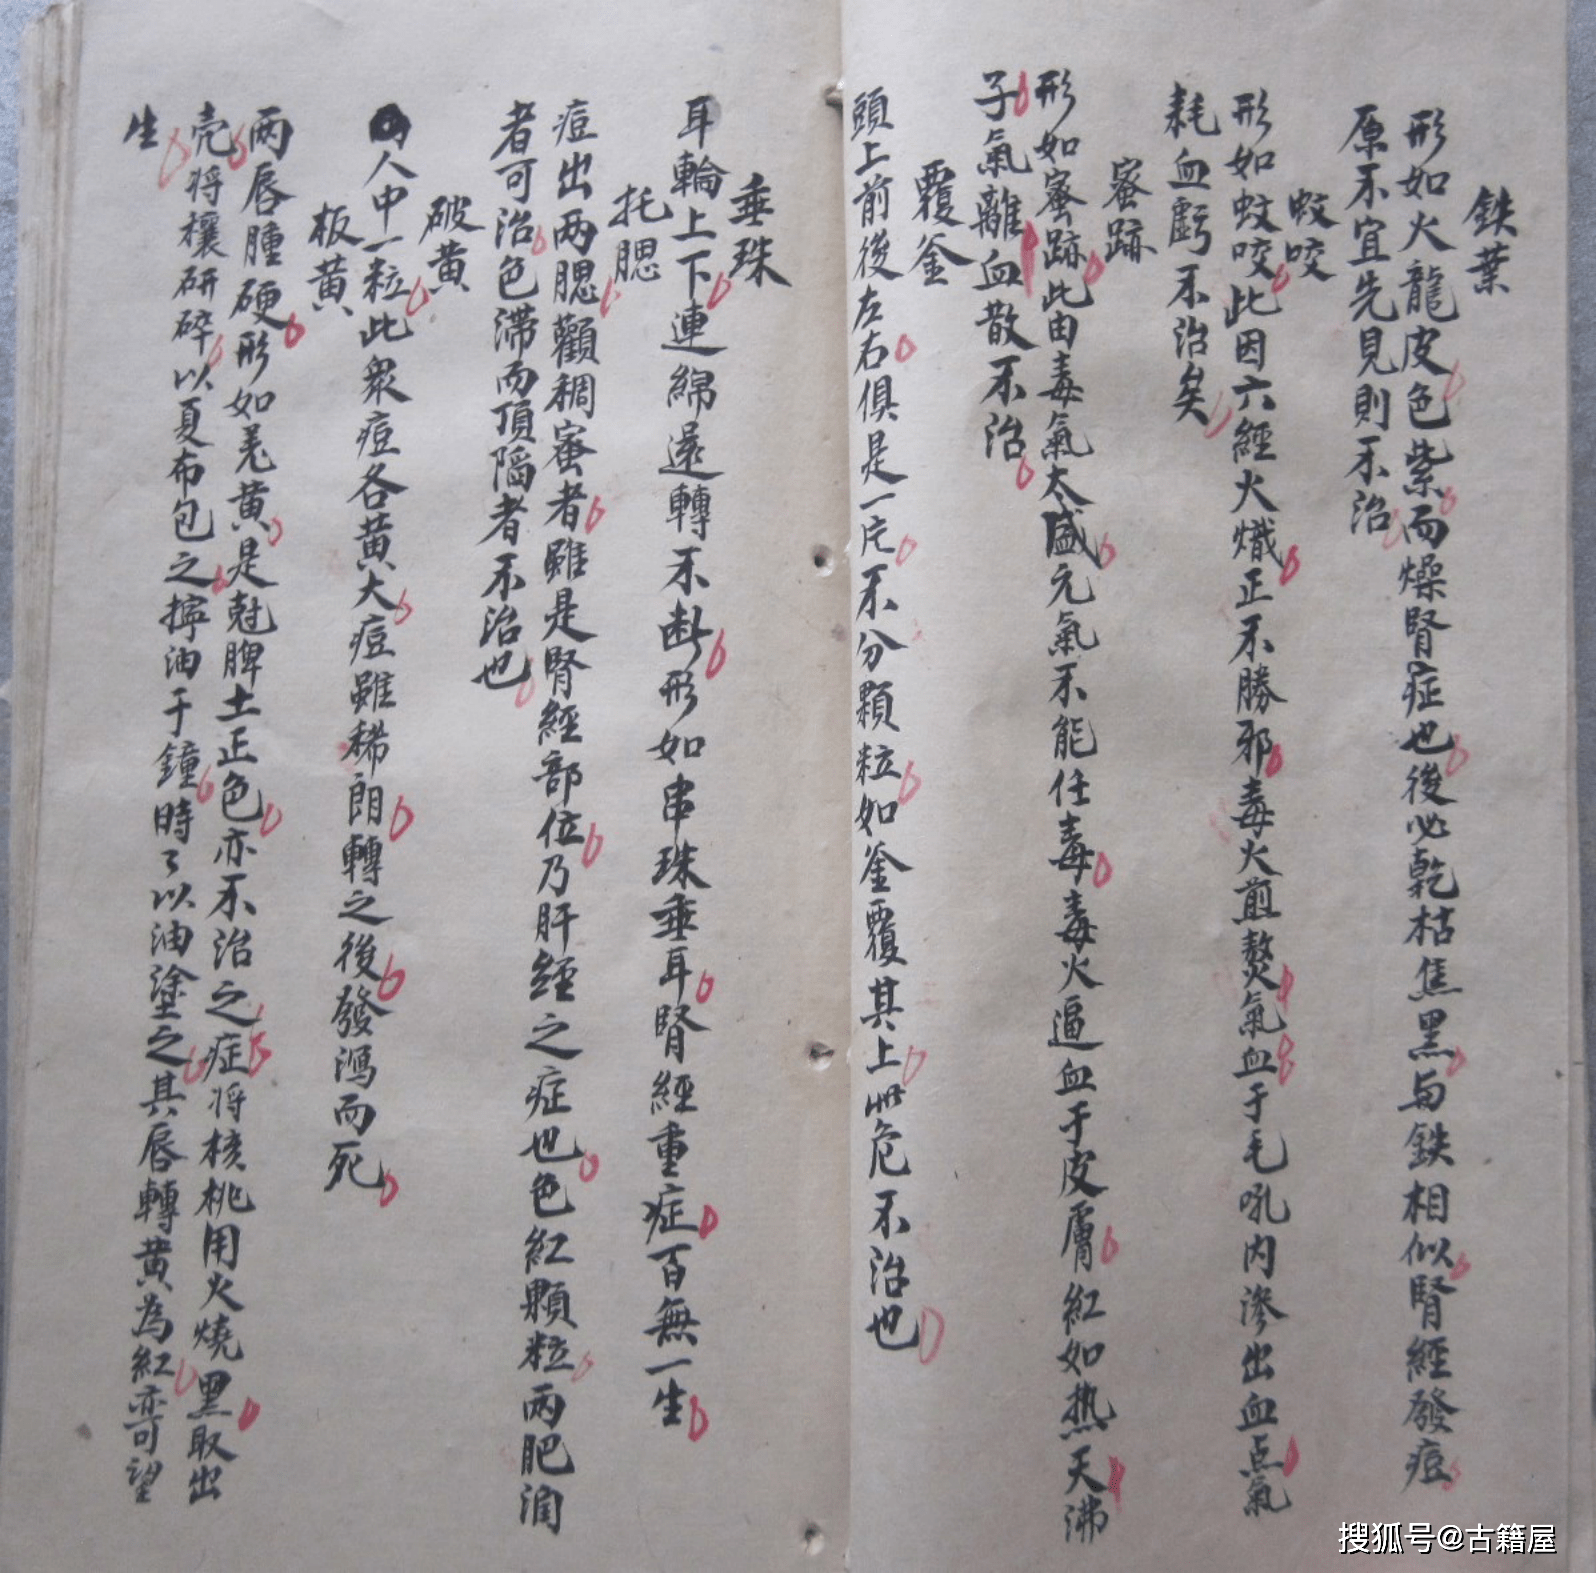 鉄葉
形如火龍皮色紫而燥腎症也後必乾枯焦黑与鉄相似腎經發痘
原不宜先見則不治
蚊咬
形如蚊咬此因六經火熾正不勝邪毒火煎熬氣血于毛吼内滲出血点氣
耗血虧不治矣
蜜跡
形如蜜跡此由毒氣太盛元氣不能任毒毒火逼血于皮膚紅如热天沸
子氣離血散不治
覆釜
頭上前後左右俱是一片不分顆粒如釜覆其上此危不治也
垂珠
耳輪上下連綿還轉不断形如串珠垂耳腎經重症百無一生
托腮
痘出两腮顴稠蜜者雖是腎經部位乃肝經之症也色紅顆粒两肥潤
者可治色滞而頂陷者不治也
破黄
人中一粒此衆痘各黄大痘雖稀朗轉之後發瀉而死
板黄
两唇腫硬形如羌黄是尅脾土正色亦不治之症将核桃用火燒黑取出
壳将穰研碎以夏布包之擰油于鐘時々以油塗之其唇轉黄為紅亦可望
生
搜狐号@古籍屋